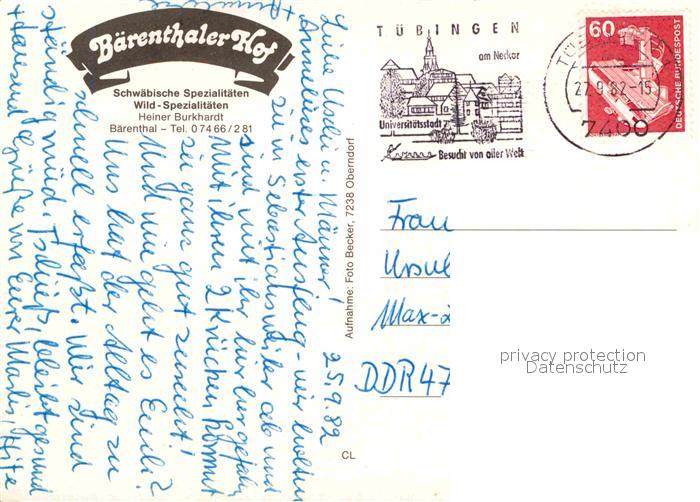 Bärenthaler Hof
Schwäbische Spezialitäten
Wild - Spezialitäten
Heiner Burkhardt
Bärenthal – Tel. 0 74 66 / 2 81
25.9.82
Liebe Uschi u. Männer!
Annelieses erster Ausflug - wir holten
sie in Sebastiansweiler ab und
sind mit ihr hierher gefahren.
Mit ihren 2 Krücken kommt
sie ganz gut zurecht!
Und wie geht es Euch?
Uns hat der Alltag zu
schnell erfaßt. Wir sind
ständig müd. Tschüß, bleibt gesund
+ tausend Grüße von Eurer
Aufnahme: Foto Becker, 7238 Oberndorf
CL
TÜBINGEN
am Neckar
Universitätsstadt
Besucht von aller Welt
27.9.82-15
7400
60
DEUTSCHE BUNDESPOST
Frau
Ursul
Max-
DDR 47
privacy protection
Datenschutz